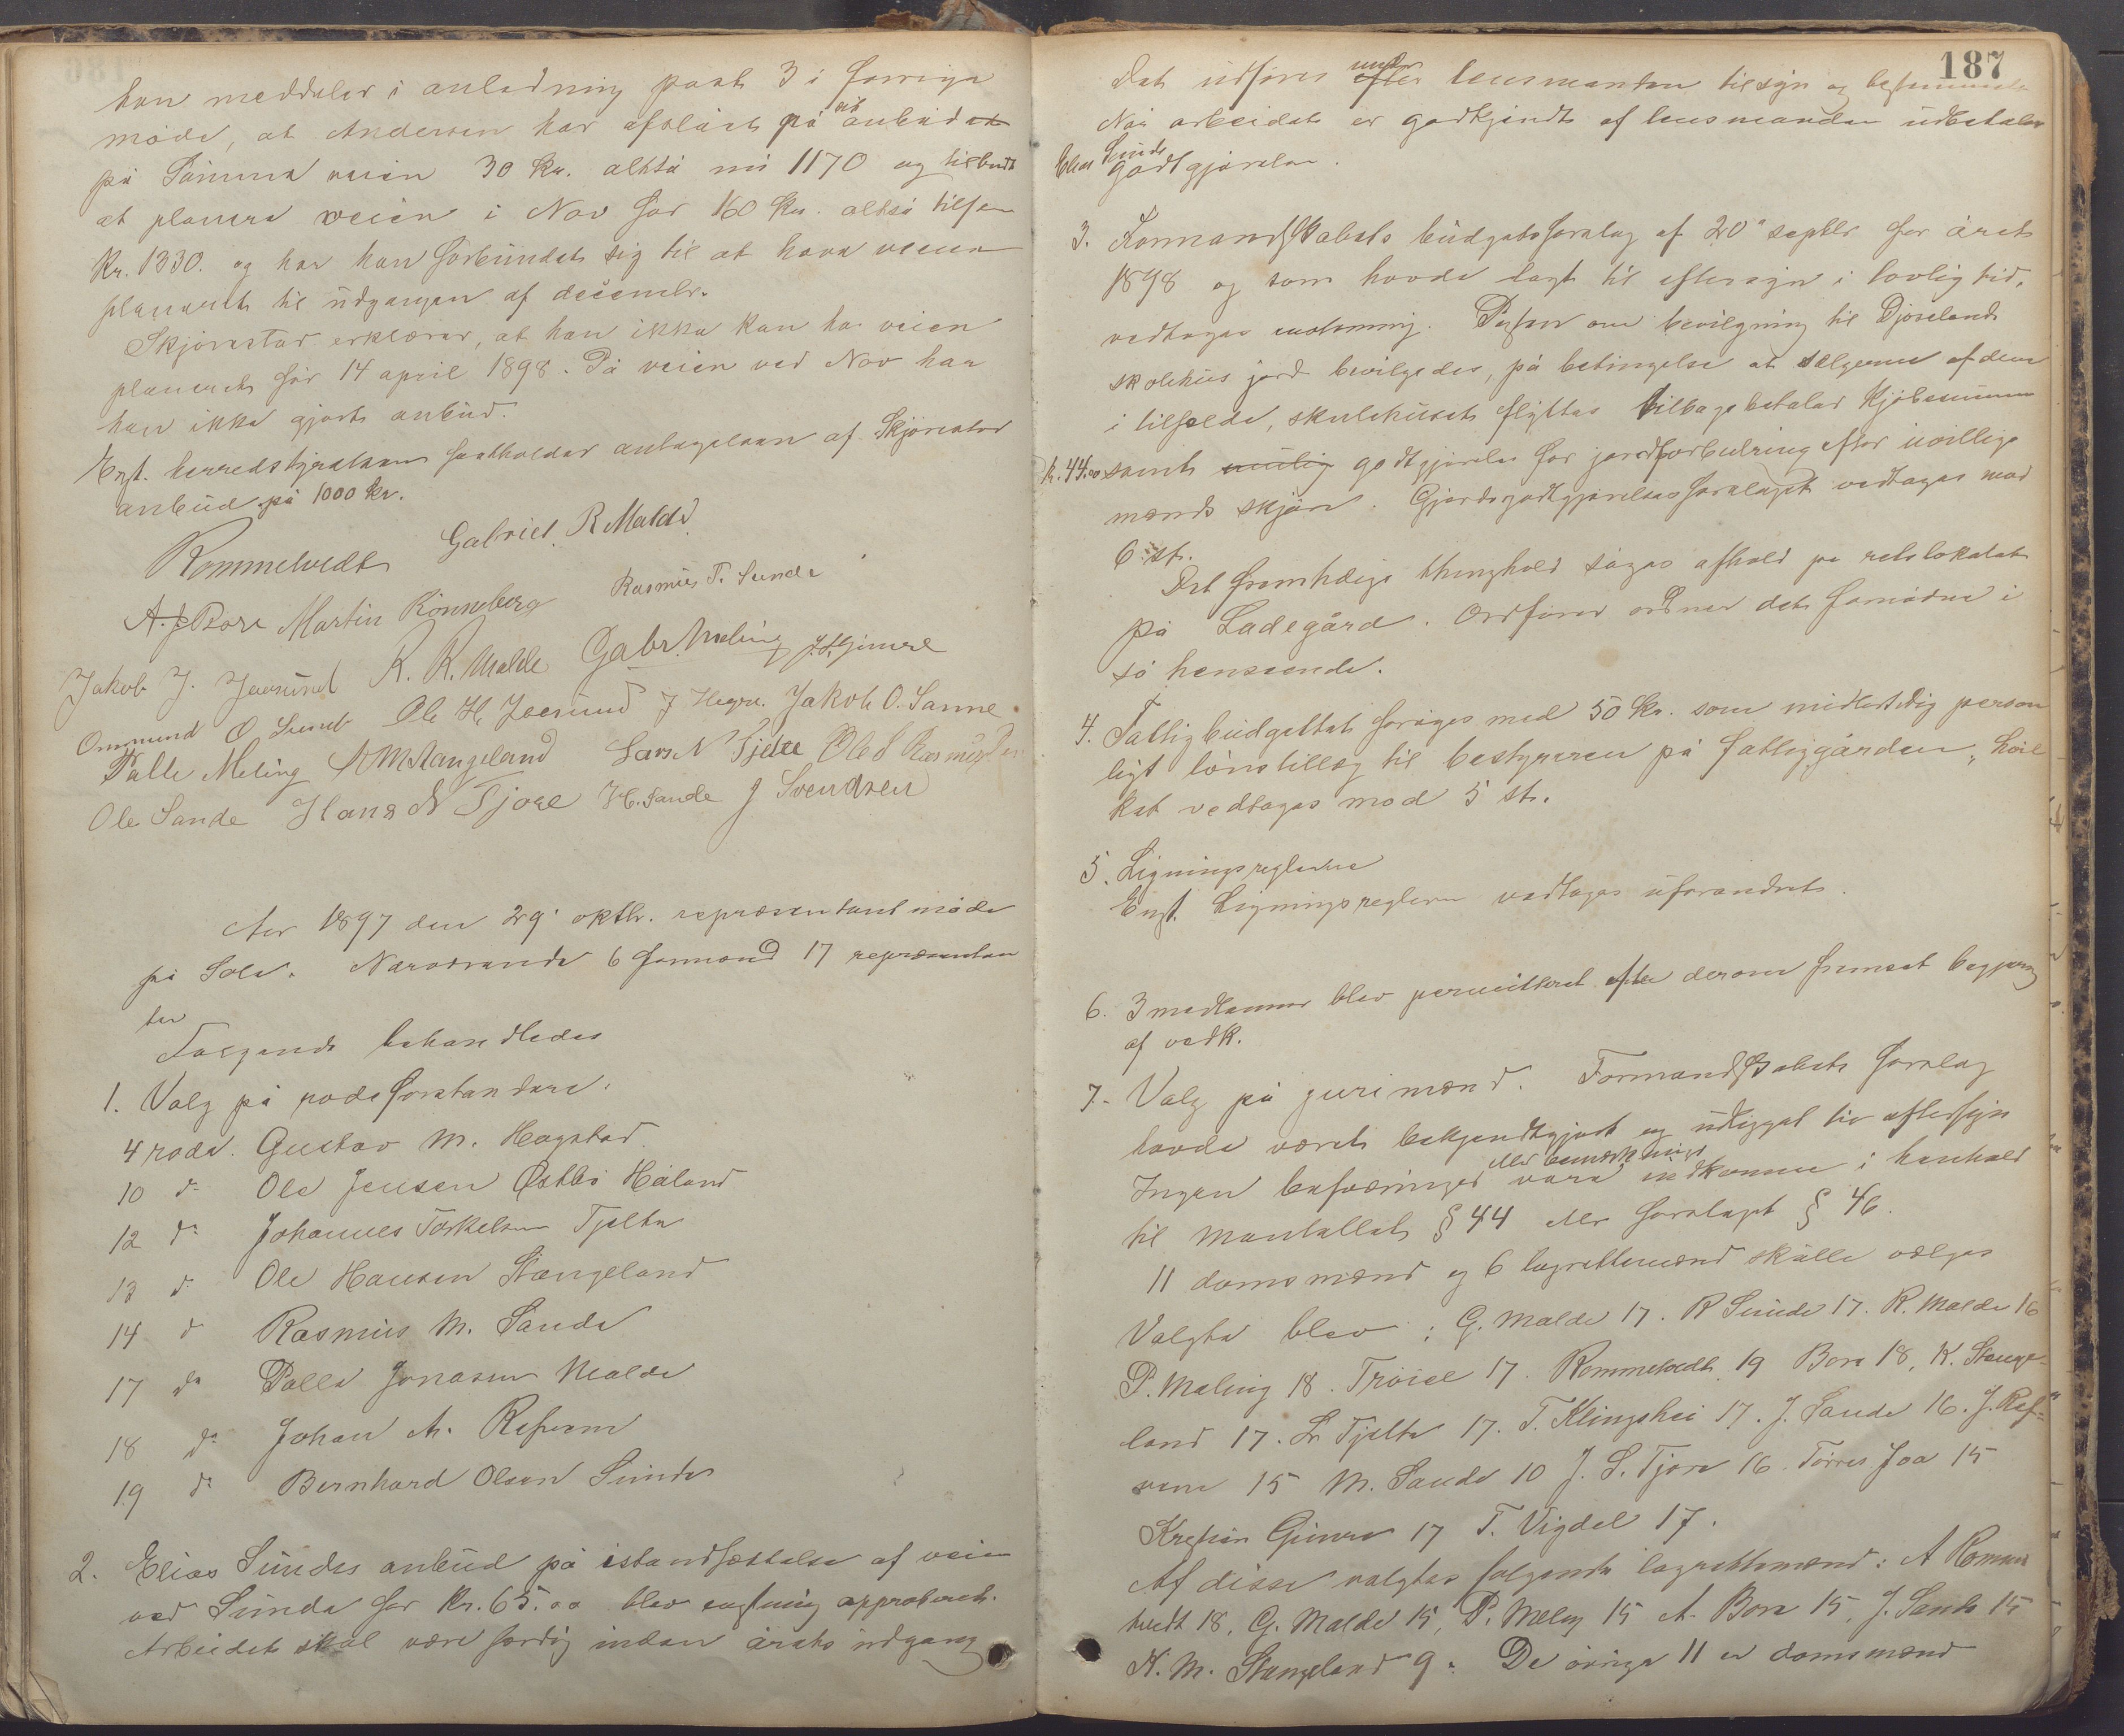 han meddeler i anledning post 3 i forrige
møde, at Andersen har afslået på sit anbud
på Sømme veien 30 Kr. altså nu 1170 og tilbudt
at planere veien i Nov for 160 Kr. altså tilsam
Kr. 1330. og har han forbundet sig til at have veien
planeret til udgangen af decembr.
Skjørestad erklærer, at han ikke kan ha veien
planeret før 14 april 1898. På veien ved Nov har
han ikke gjort anbud.
Enst. herredstyrelsen fastholder antagelsen af Skjørestad
anbud på 1000 kr.
Rommetvedt Gabriel R Malde
A. J Bore Martin Rönneberg Rasmus T. Sunde
Jakob J. Joasund R. R. Malde Gabr. Meling J. S. Gimre
Ommund O Sunde Ole H. Joasund J Hegre. Jakob O. Sømme
Palle Meling K M Stangeland Lars N Tjelta Ole S Rasmussen
Ole Sande Hans N Tjore H. Sande J Svendsen
Aar 1897 den 29' oktbr. repræsentantmøde
på Sola. Nærværende 6 formænd 17 repræsentan
ter
Følgende behandledes
1. Valg på rodeforstandere.
4 rode. Gustav M. Hogstad
10 do Ole Jensen Østbø Håland
12 do Johannes Torkelsen Tjelta
13 do Ole Hansen Stangeland
14 do Rasmus M. Sande
17 do Palle Jonasen Malde
18 do Johan A. Refsnes
19 do Bernhard Olsen Sunde
2. Elias Sundes anbud på istandsættelse af veien
ved Sunde for Kr. 65.00 blev enstemig approberet.
Arbeidet skal være færdig inden årets udgang
187
Det udføres efter under lensmanden tilsyn og bestemmelse
Når arbeidet er godkjendt af lensmanden udbetales
Elias Sunde godtgjørelsen.
3. Formandskabets budgetsforslag af 20' septbr for året
1898 og som havde lagt til eftersyn i lovlig tid,
vedtages enstemmig. Posten om bevilgning til Djøselands
skolehus jord bevilgedes, på betingelse at sælgerne af denne
i tilfælde, skulehuset flyttes tilbagebetaler Kjøbesummen
kr. 44.00 samt mulig godtgjørelse for jordforbedring efter uvillige
mænds skjøn. Gjærdegodtgjørelsesforslaget vedtages mod
6 st.
Det fremtidige thinghold søges afhold på retslokalet
på Ladegård. Ordfører ordner det fornødne i
så henseende.
4. Fattigbudgettet forøges med 50 Kr. som midlertidig person
ligt lønstillæg til bestyreren på fattiggården, hvil
ket vedtages mod 5 st.
5. Ligningsreglerne
Enst. Ligningsreglerne vedtages uforandret.
6. 3 medlemmer blev permitteret efter derom fremsat begjæring
af vedk.
7. Valg på jurimænd. Formandskabets forslag
havde været bekjendtgjort og udlagt til eftersyn
Ingen besværinger eller bemærkninger vare indkomne i henhold
til mantallets § 44 eller forslaget § 46.
11 domsmænd og 6 lagrettemænd skulle vælges
Valgte blev: G. Malde 17. R Sunde 17. R. Malde 16
P. Meling 18. Trøiel 17. Rommetvedt 19 Bore 18, K. Stange-
land 17. L. Tjelta 17. T. Klingshei 17. J. Sande 16. J. Ref-
snes 15 M. Sande 10 J. S. Tjore 16. Tørres Joa 15
Kristian Gimre 17 T. Vigdel 17.
Af disse valgtes følgende lagrettemænd: A Romme
tvedt 18, G. Malde 15, P. Meling 15 A. Bore 15, J. Sande 15
K. M. Stangeland 9. De øvrige 11 er domsmænd